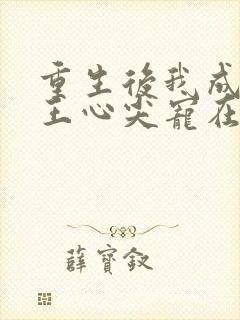 重生後我成
王心尖寵在
薛寶釵